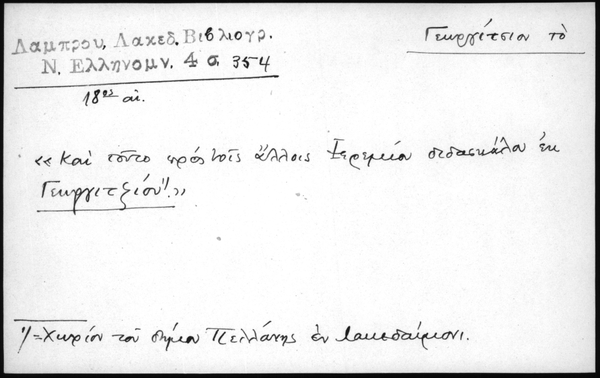 Γεωργίτσιον τὸ
Λαμπρου, Λακεδ. Βιβλιογρ.
Ν. Ελληνομν. 4 σ. 354
18ος αἰ.
«Καὶ τοῦτο πρὸς τοῖς ἄλλοις Ἱερεμίου διδασκάλου ἐκ
Γεωργιτζίου¹⁾.»
1)=Χωρίον τοῦ δήμου Πελλάνης ἐν Λακεδαίμονι.